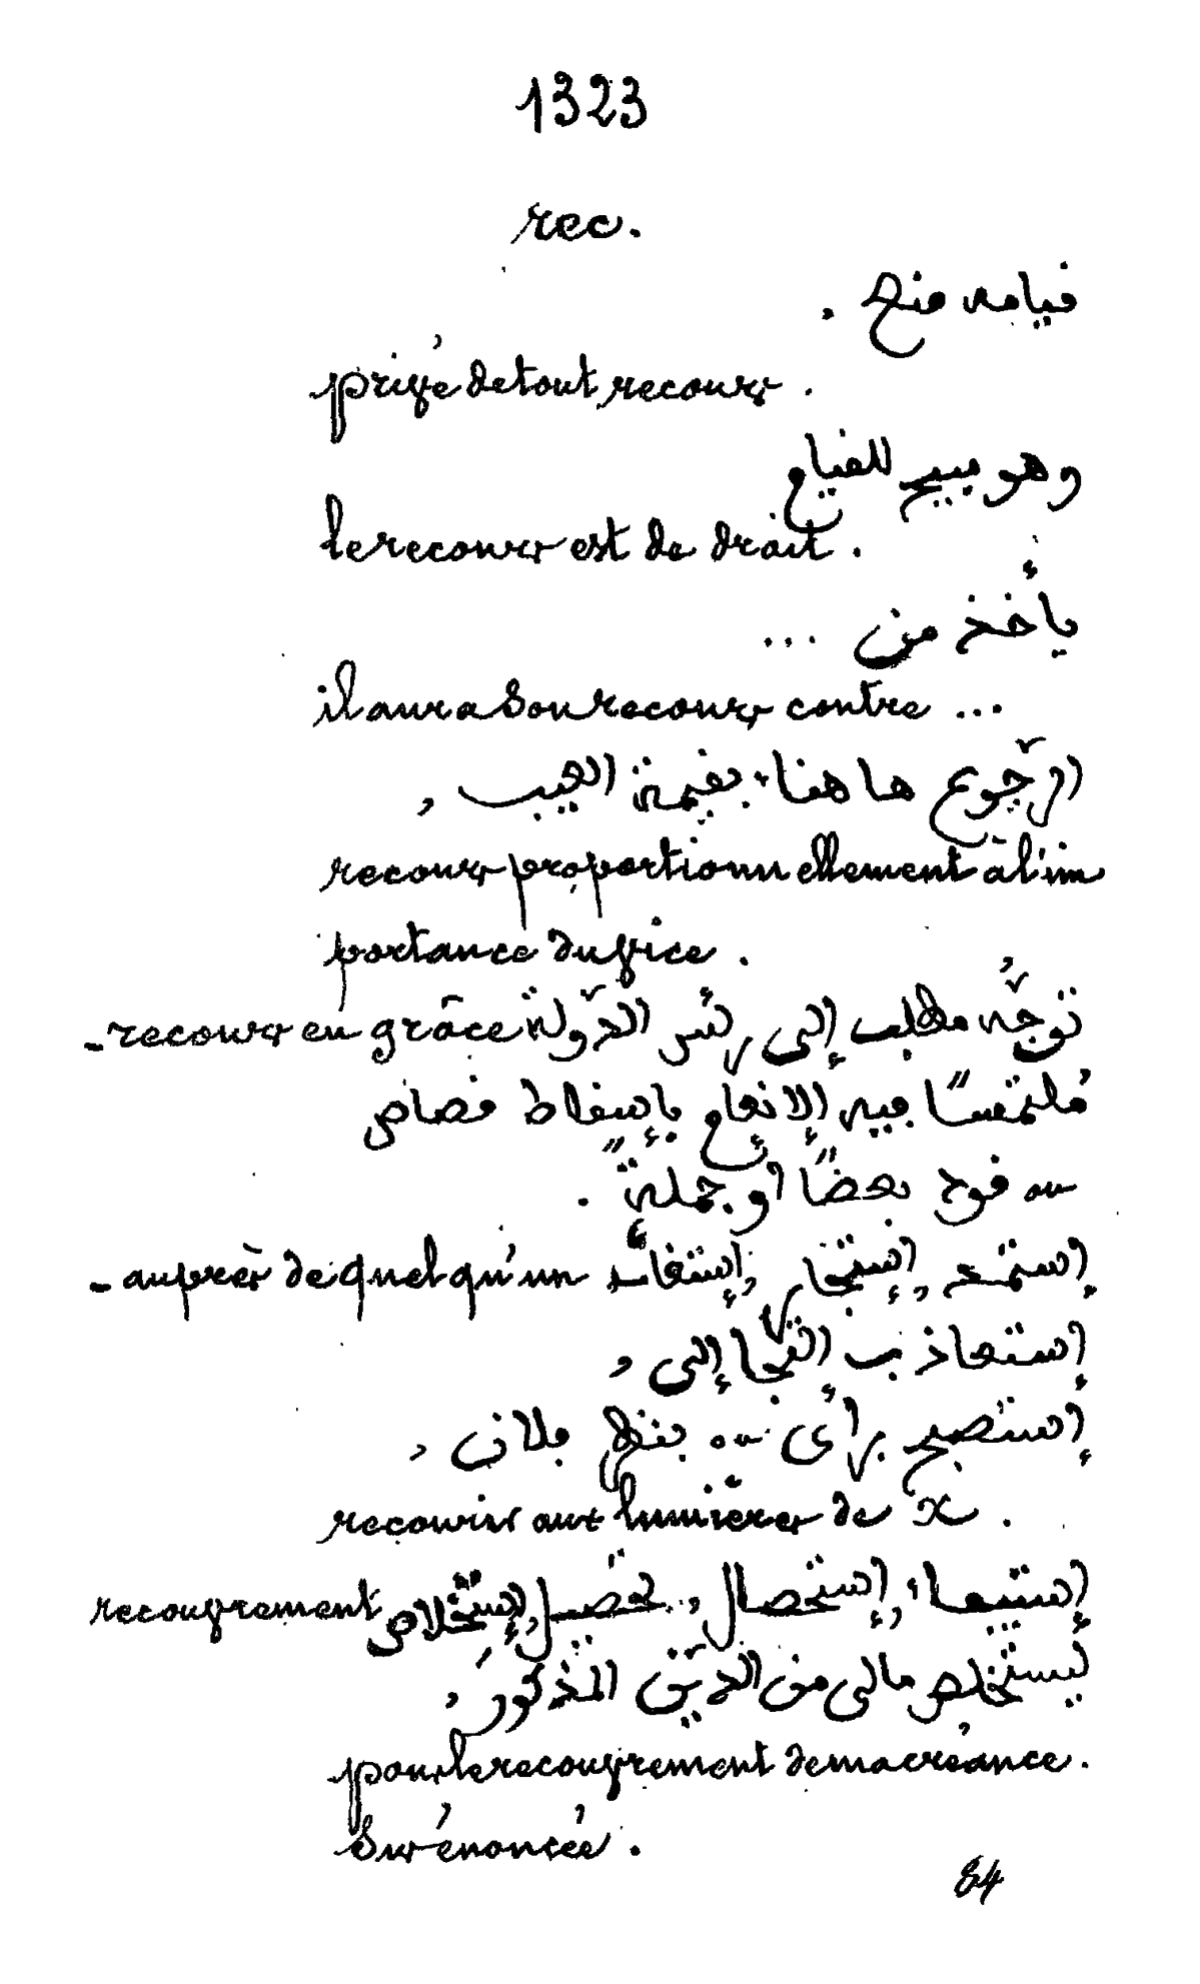 1323
rec.
قيامه منح .
privé de tout recours .
وهو يبيح للقيام
le recours est de droit .
يأخذ من ...
il aura son recours contre ...
الرّجوع ها هنا بقيمة العيب ,
recours proportionnellement à l'im
portance du vice .
-recours en grâce توجّه مطلب إلى رئس الدّولة
مُلتمسًا فيه الإنعام بإسقاط قصاص
ou قود بعضًا أو جملةً .
- auprès de quelqu'un إستمد , إستجار , إستغاث
إستعاذ ب إلتجأ إلى ,
إستصبح برأى ou بنظر فلان ,
recourir aux lumières de x .
recouvrement إستيفاء , إستحصال , تحصيل , إستخلاص
ليستخلص مالى من الدّين المذكور ,
pour le recouvrement de ma créance .
susénoncée .
84